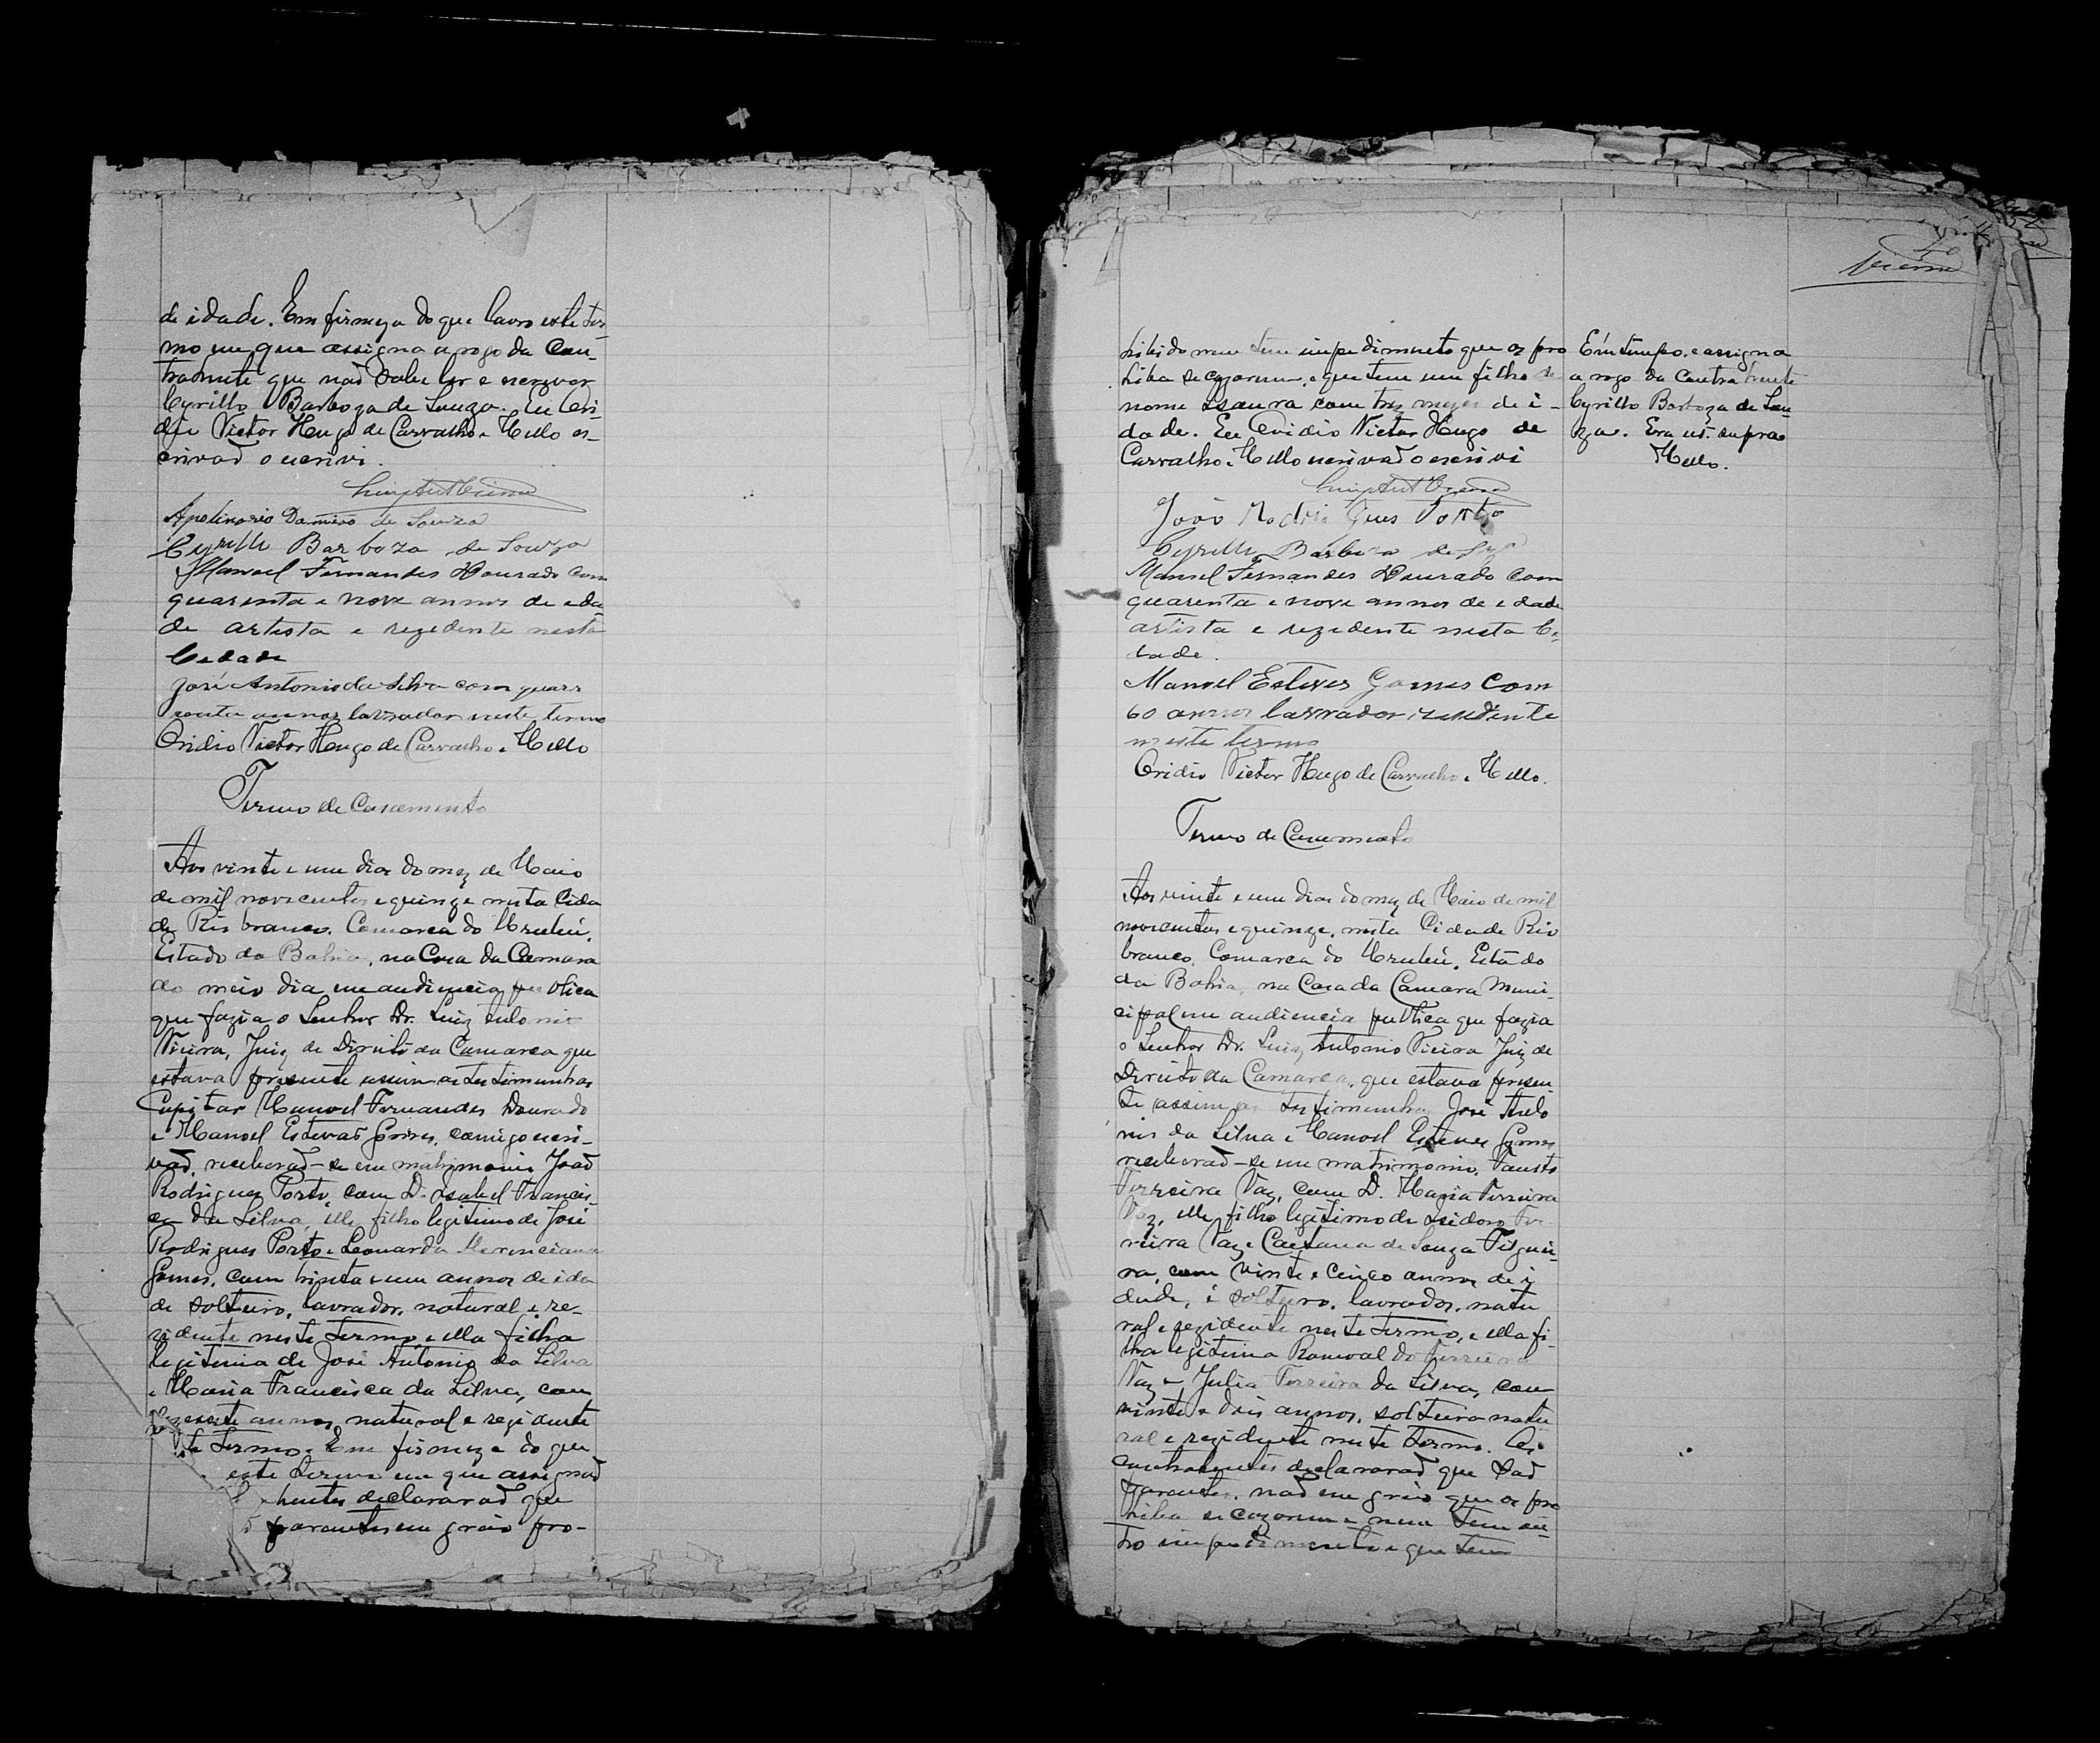 de idade. Em firmeza do que lavro este ter-
mo em que assigna a rogo da Con-
trahente que naõ sabe ler e escrever
Cyrillo Barboza de Souza. Eu Ovi-
dio Victor Hugo de Carvalho e Mello es-
crivaõ o escrivi.
Luiz Ant Vieira
Apolinario Damião de Souza
Cyrillo Barboza de Souza
Manoel Fernandes Dourado com
quarenta e nove annos de eda
de artista e rezedente nesta
Cedade
José Antonio da Silva com quar
renta annos lavrador neste termo
Ovidio Victor Hugo de Carvalho e Mello
Termo de Casamento
Aos vinte e um dias do mez de Maio
de mil novecentos e quinze nesta Cida
de Rio branco, Comarca do Urubú,
Estado da Bahia, na Casa da Camara
ao meio dia em audiencia publica
que fazia o Senhor Dr. Luiz Antonio
Vieira, Juiz de Direito da Comarca que
estava presente assim as testimunhas
Capitão Manoel Fernandes Dourado
e Manoel Estevaõ Gomes, comigo escri-
vaõ, receberaõ-se em matrimonio Joaõ
Rodrigues Porto, com D. Isabel Francis-
ca da Silva, elle filho legitimo de José
Rodrigues Porto e Leonarda
Gomes, com trinta e um annos de ida
de solteiro, lavrador, natural e re-
zidente neste termo, e ella filha
legitima de José Antonio da Silva
e Maria Francisca da Silva, com
annos, natural e rezidente
termo. Em firmeza do que
este termo em que assignaõ
hentes declararaõ que
parentes em gráo pro-
hibido nem tem impedimento que os pro
hiba se cazarem, e que tem um filho de
nome Isaura com trez mezes de i-
dade. Eu Ovidio Victor Hugo de
Carvalho e Mello escrivaõ o escrivi
Em tempo. e assigna
a rogo da Contrahente
Cyrillo Barboza de Sou-
za. Era ut supra
Mello.
Luiz Ant Vieira
João Rodrigues Porto
Cyrillo Barboza de Sza
Manoel Fernandes Dourado com
quarenta e nove annos de edade
artista e rezedente nesta Ce
dade.
Manoel Esteves Gomes com
60 annos lavrador rezidente
neste termo
Ovidio Victor Hugo de Carvalho e Mello.
Termo de Casamento
Aos vinte e um dias do mez de Maio de mil
novecentos e quinze, nesta Cidade Rio
branco, Comarca do Urubú, Estado
da Bahia, na Casa da Camara Muni-
cipal em audiencia publica que fazia
o Senhor Dr. Luiz Antonio Vieira Juiz de
Direito da Comarca, que estava presen
te assim as testimunhas José Anto
nio da Silva e Manoel Esteves Gomes
receberaõ-se em matrimonio, Fausto
Ferreira Vaz, com D. Maria Ferreira
Vaz, elle filho legitimo de Isidoro Fer
reira Vaz e Caetana de Souza Filguei
ra, com vinte e cinco annos de i
dade, é solteiro, lavrador, natu
ral e rezidente neste termo, e ella fi-
lha legitima Romoaldo Ferreira
Vaz e Julia Ferreira da Silva, com
vinte e dois annos, solteira natu
ral e rezidente neste termo. Os
contrahentes declararaõ que saõ
parentes, naõ em gráo que os pro
hiba se cazarem e nem tem ou-
tro impedimento e que tem
Vieira